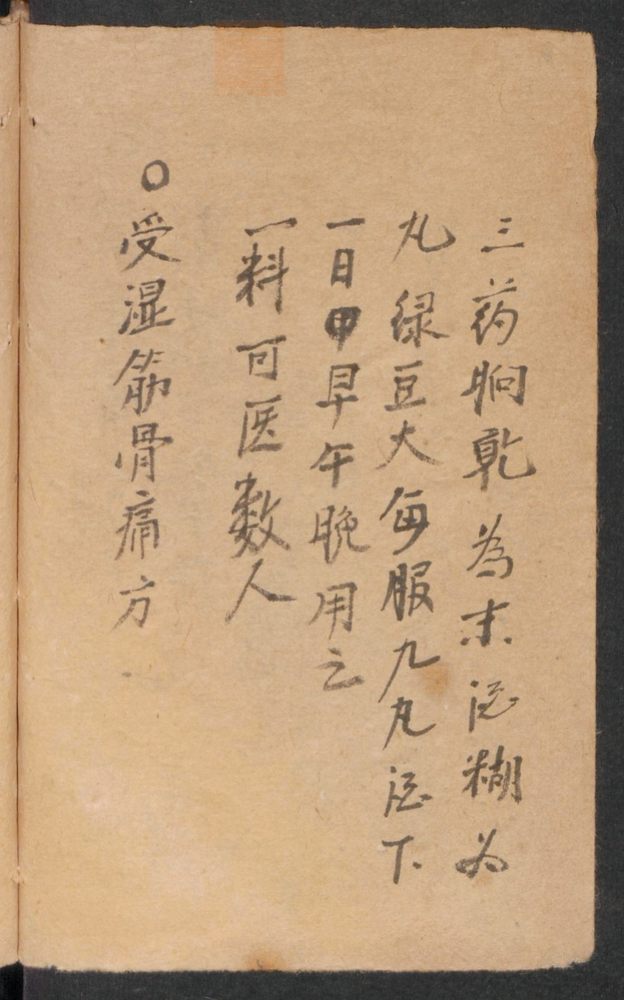 三药晌乾為末酒糊为
丸绿豆大每服九丸酒下
一日中早午晚用之
一料可医数人
○受湿筋骨痛方